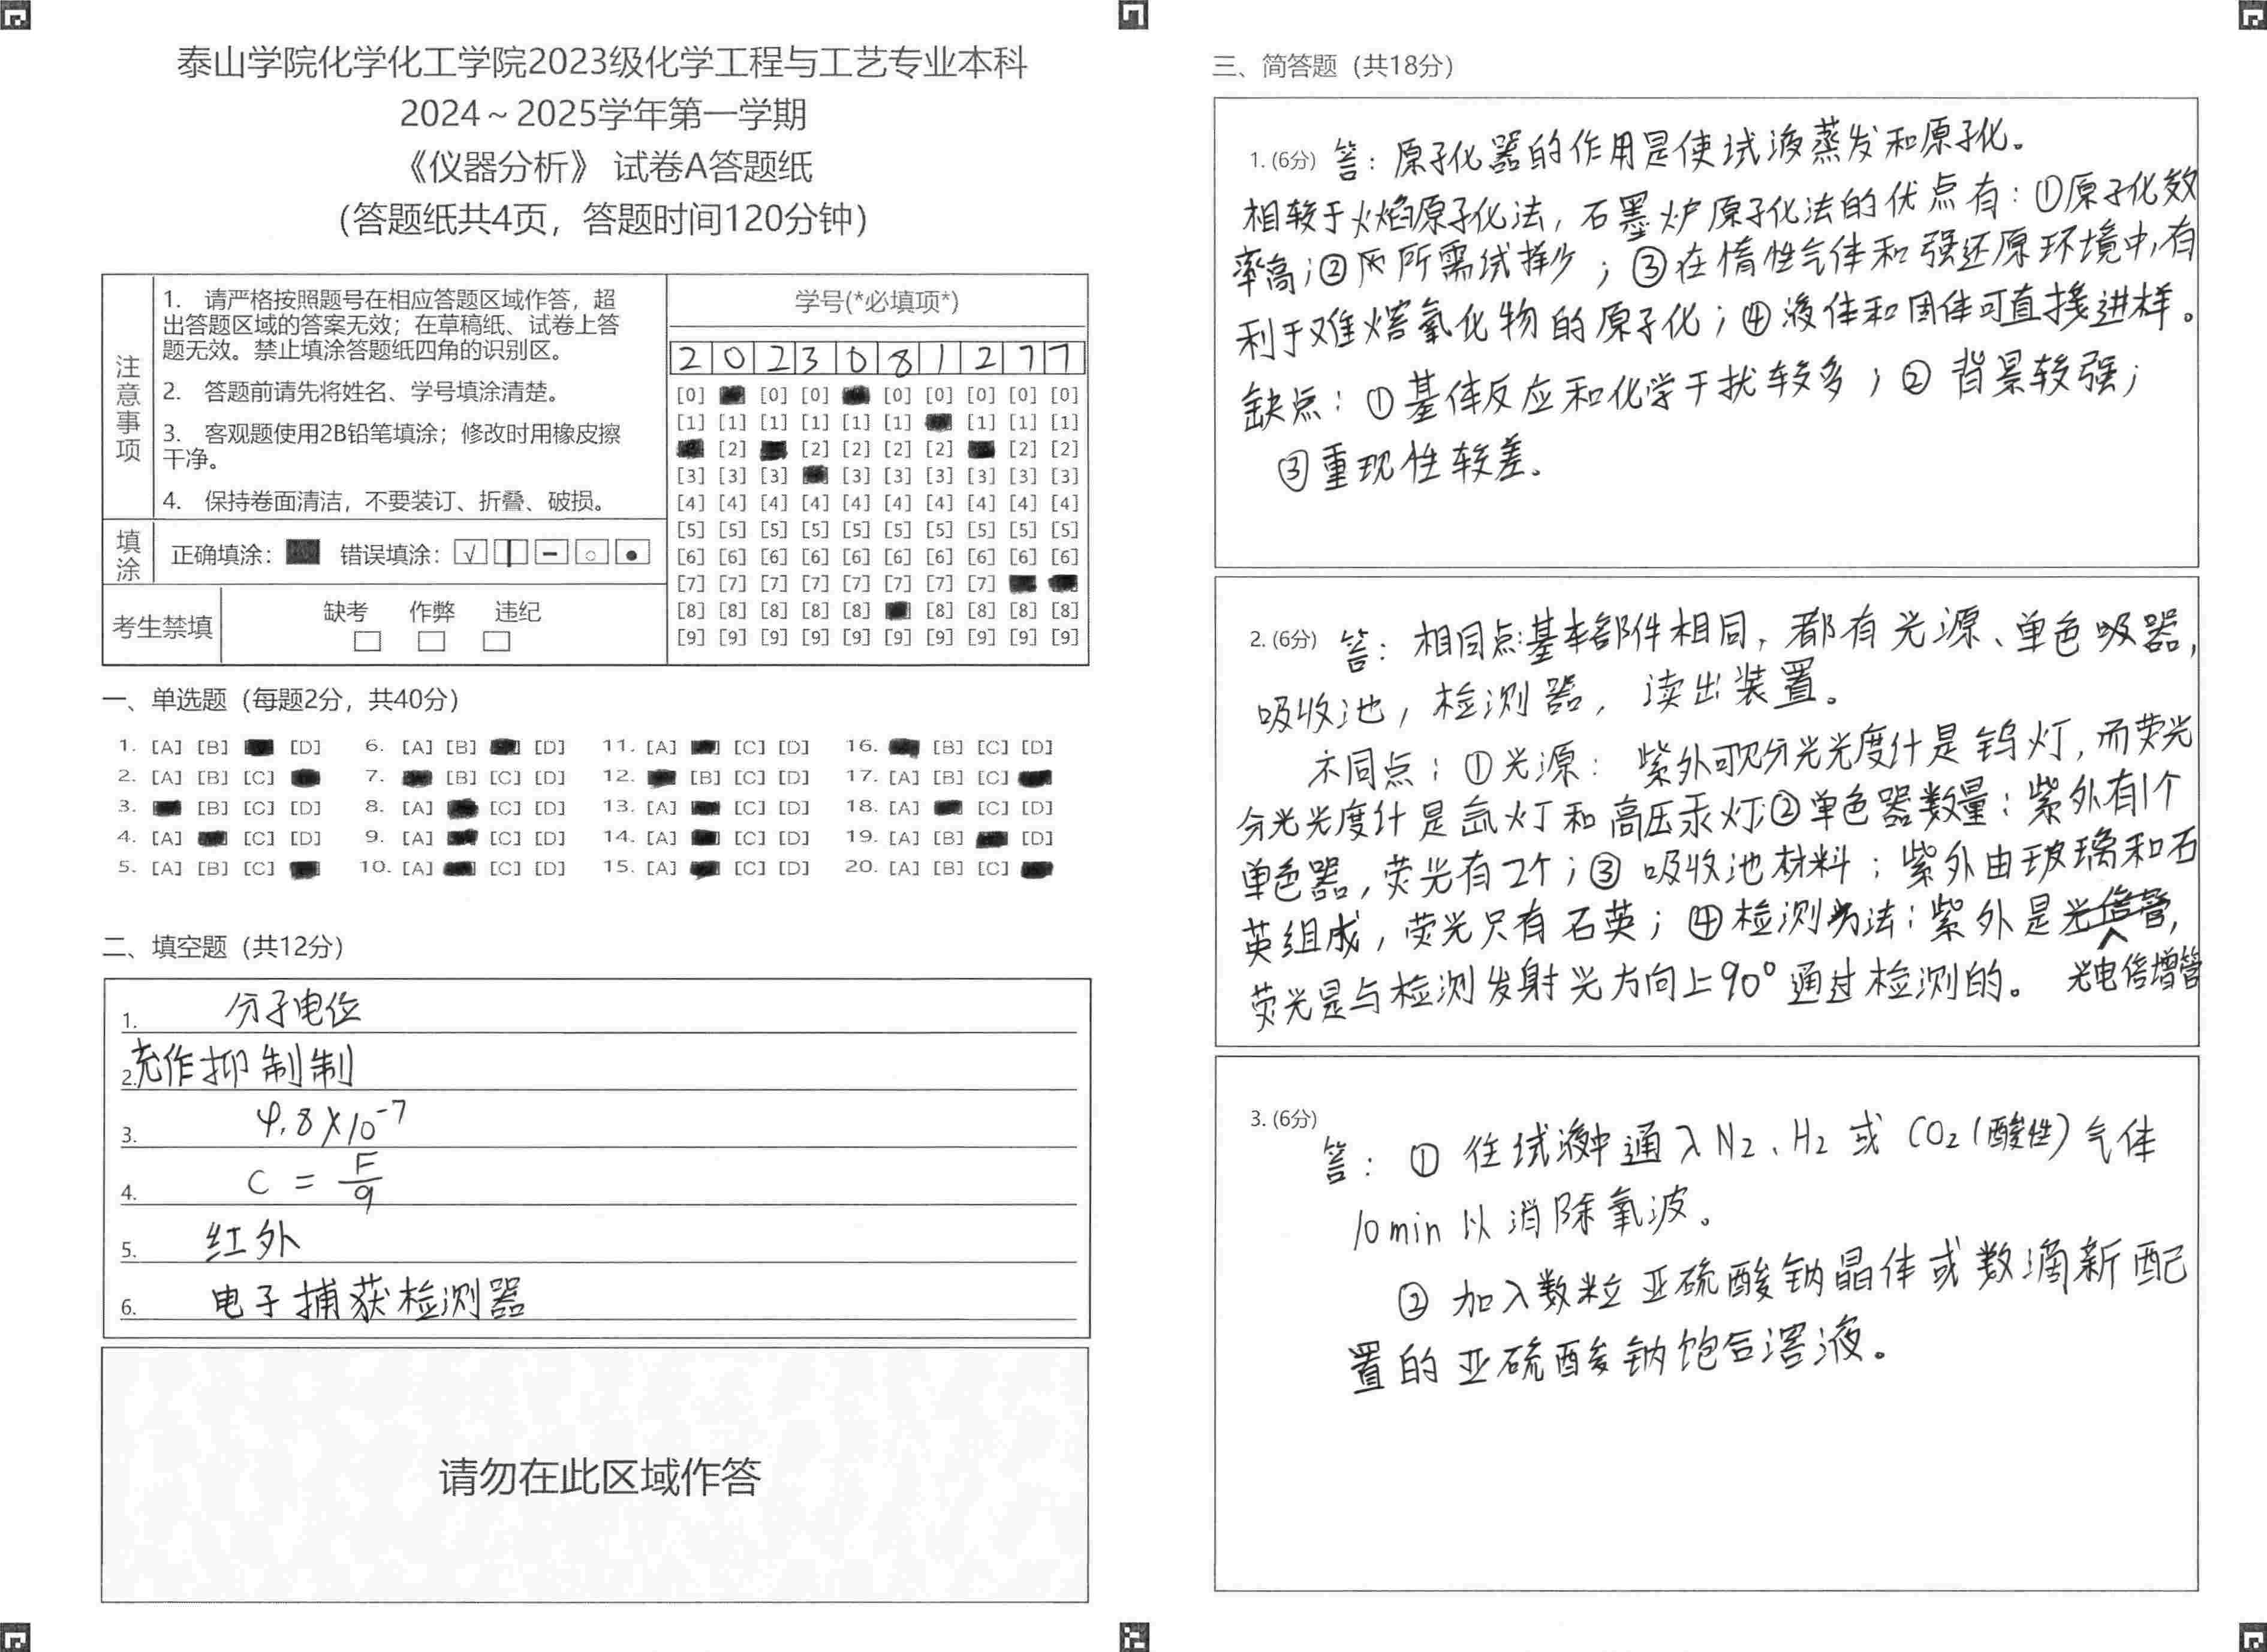 泰山学院化学化工学院2023级化学工程与工艺专业本科
2024～2025学年第一学期
《仪器分析》 试卷A答题纸
（答题纸共4页，答题时间120分钟）
注意事项
1. 请严格按照题号在相应答题区域作答，超
出答题区域的答案无效；在草稿纸、试卷上答
题无效。禁止填涂答题纸四角的识别区。
2. 答题前请先将姓名、学号填涂清楚。
3. 客观题使用2B铅笔填涂；修改时用橡皮擦
干净。
4. 保持卷面清洁，不要装订、折叠、破损。
填涂
正确填涂： 错误填涂：
考生禁填
缺考 作弊 违纪
学号(*必填项*)
2 0 2 3 0 8 1 2 7 7
[0] [0] [0] [0] [0] [0] [0] [0]
[1] [1] [1] [1] [1] [1] [1] [1] [1]
[2] [2] [2] [2] [2] [2] [2]
[3] [3] [3] [3] [3] [3] [3] [3] [3]
[4] [4] [4] [4] [4] [4] [4] [4] [4] [4]
[5] [5] [5] [5] [5] [5] [5] [5] [5] [5]
[6] [6] [6] [6] [6] [6] [6] [6] [6] [6]
[7] [7] [7] [7] [7] [7] [7] [7]
[8] [8] [8] [8] [8] [8] [8] [8] [8]
[9] [9] [9] [9] [9] [9] [9] [9] [9] [9]
一、单选题（每题2分，共40分）
1. [A] [B] [D] 6. [A] [B] [D] 11. [A] [C] [D] 16. [B] [C] [D]
2. [A] [B] [C] 7. [B] [C] [D] 12. [B] [C] [D] 17. [A] [B] [C]
3. [B] [C] [D] 8. [A] [C] [D] 13. [A] [C] [D] 18. [A] [C] [D]
4. [A] [C] [D] 9. [A] [C] [D] 14. [A] [C] [D] 19. [A] [B] [D]
5. [A] [B] [C] 10. [A] [C] [D] 15. [A] [C] [D] 20. [A] [B] [C]
二、填空题（共12分）
1. 分子电位
2. 充作抑制制
3. 4.8×10⁻⁷
4. C = F/q
5. 红外
6. 电子捕获检测器
请勿在此区域作答
三、简答题（共18分）
1. (6分) 答：原子化器的作用是使试液蒸发和原子化。
相较于火焰原子化法，石墨炉原子化法的优点有：①原子化效
率高；② 所需试样少；③在惰性气体和强还原环境中,有
利于难熔氧化物的原子化；④液体和固体可直接进样。
缺点：①基体反应和化学干扰较多；②背景较强；
③重现性较差。
2. (6分) 答：相同点:基本部件相同，都有光源、单色吸器，
吸收池，检测器，读出装置。
不同点：①光源：紫外可见分光光度计是钨灯，而荧光
分光光度计是氙灯和高压汞灯;②单色器数量：紫外有1个
单色器，荧光有2个；③吸收池材料；紫外由玻璃和石
英组成，荧光只有石英；④检测方法：紫外是光倍管，
荧光是与检测发射光方向上90°通过检测的。 光电倍增管
3. (6分)
答：①往试液中通入N₂、H₂或CO₂(酸性)气体
10min以消除氧波。
②加入数粒亚硫酸钠晶体或数滴新配
置的亚硫酸钠饱合溶液。